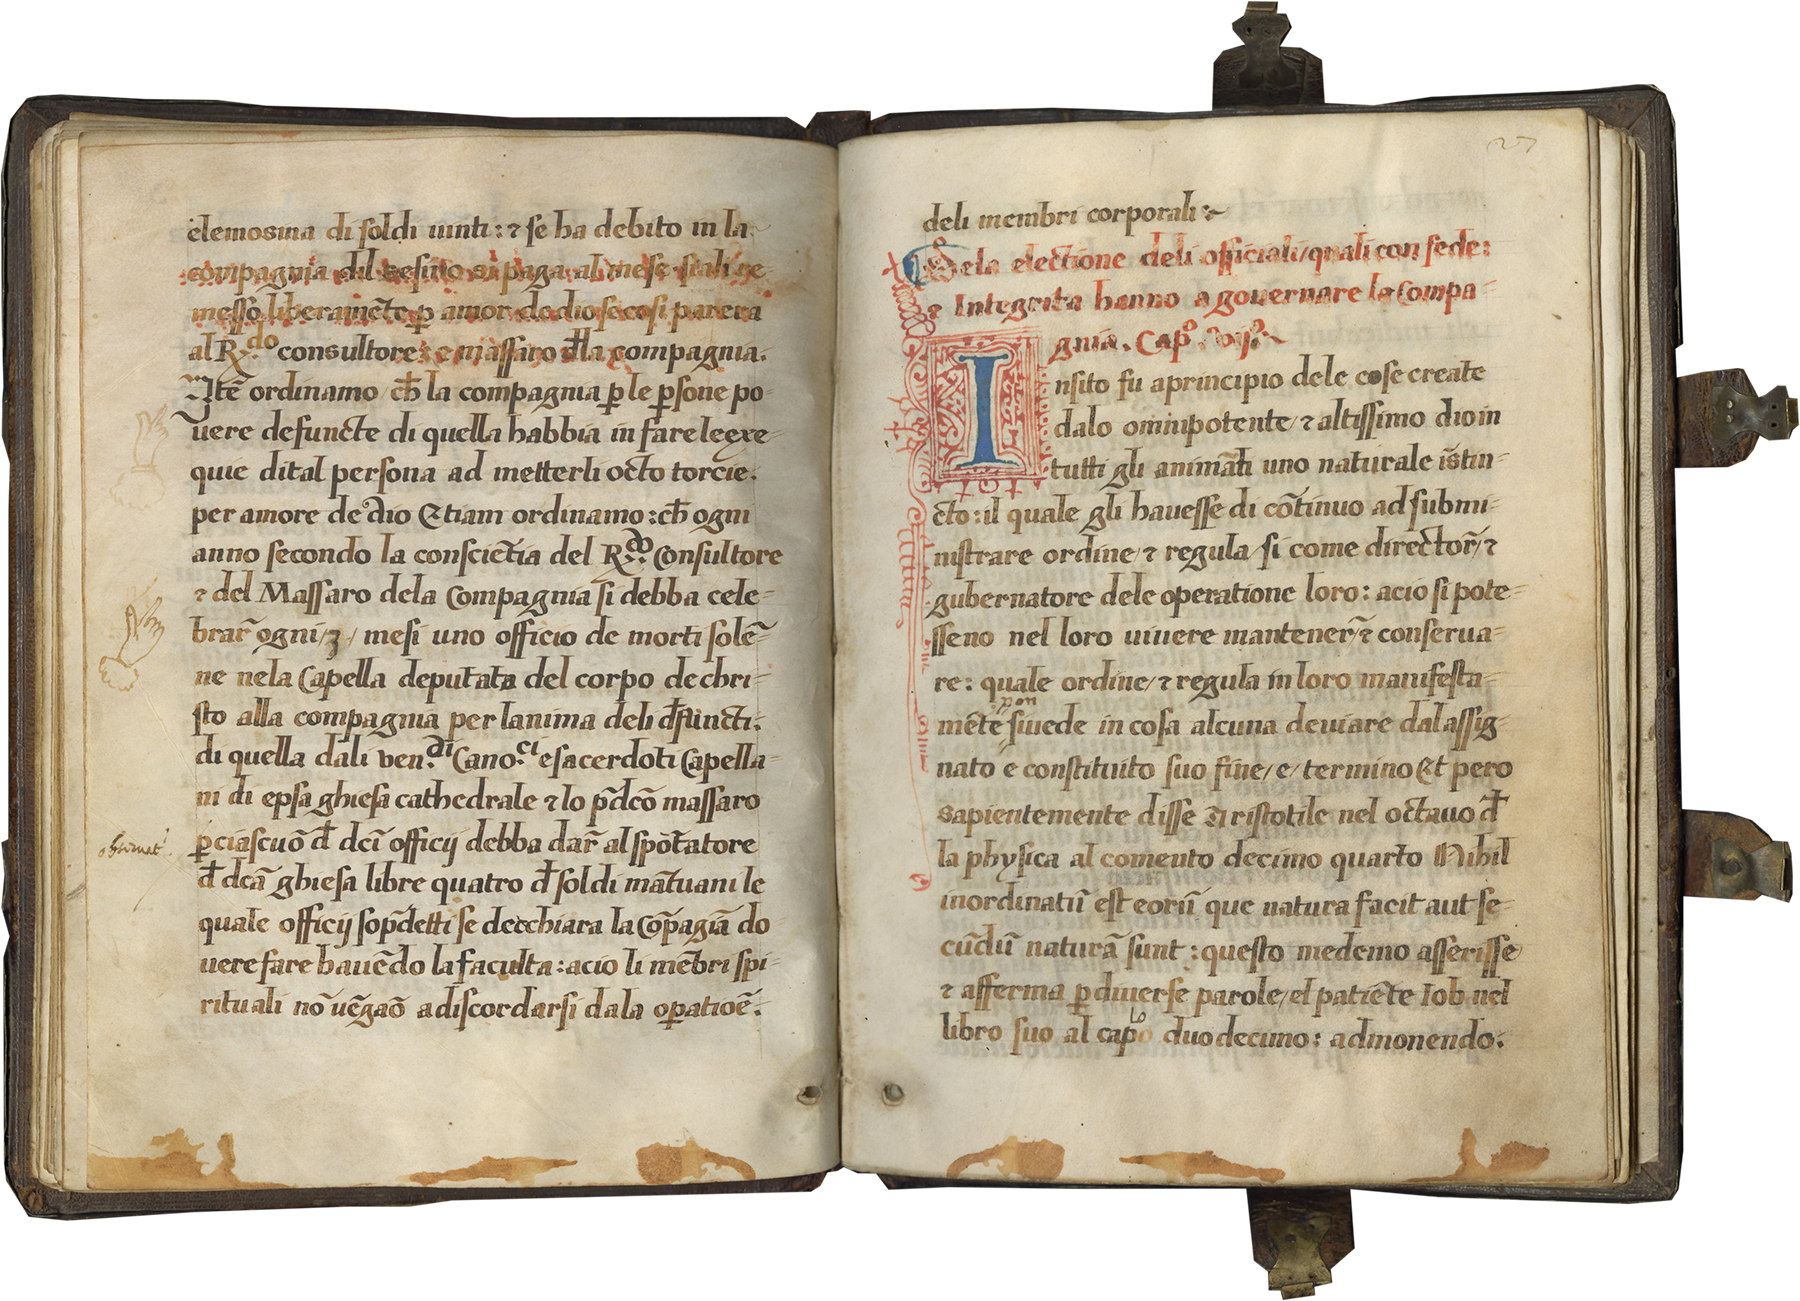 elemosina di soldi uinti: ⁊ se ha debito in la
compagnia dil resuto si paga al mese siali re-
messo liberamẽte ꝑ amor de dio se cosi parera
al R.do consultore: e massaro đla compagnia.
Itẽ ordinamo / cħ la compagnia ꝑ le ꝑsone po-
uere defuncte di quella habbia in fare le exe-
quie di tal persona ad metterli octo torcie.
per amore de dio Etiam ordinamo: cħ ogni
anno secondo la consciẽtia del R.do Consultore
⁊ del Massaro dela Compagnia si debba cele-
brar̃ ogni /3/ mesi uno officio de morti solẽ-
ne nela Capella deputata del corpo de chri-
sto alla compagnia per lanima deli đfuncti:
di quella dali ven.di Cano.ci e sacerdoti Capella-
ni di epsa ghiesa cathedrale ⁊ lo p̃dcõ massaro
ꝑ ciascuõ đ dcĩ officij debba dar̃ al spõtatore
đ dcã ghiesa libre quatro đ soldi mãtuani le
quale officij sop̃detti se decchiara la cõpagiã do
uere fare hauẽdo la faculta: acio li mẽbri spi-
rituali nõ uẽgaõ a discordarsi da la oꝑatioẽ.
27
deli membri corporali:~
Dela electione deli officiali / quali con fede:
⁊ Integrita hanno a gouernare la Compa-
gnia. Cap.º vij.º
Insito fu a principio dele cose create
dalo omnipotente / ⁊ altissimo dio in
tutti gli animãti uno naturale ĩstin-
cto: il quale gli hauesse di cõtinuo ad submi-
nistrare ordine / ⁊ regula / si come director̃ / ⁊
gubernatore dele operatione loro: acio si pote-
sseno nel loro uiuere mantener̃ ⁊ conserua-
re: quale ordine / ⁊ regula in loro manifesta-
pon
mẽte si uede in cosa alcuna deuiare dal assig-
nato e constituito suo fine / e / termino Et pero
sapientemente disse Aristotile nel octauo đ
la physica al comento decimo quarto Nihil
inordinatũ est eorũ que natura facit aut se-
cũdũ naturã sunt: questo medemo asserisse
⁊ afferma ꝑ diuerse parole / el patiẽte Iob nel
libro suo al capº duodecimo: admonendo: